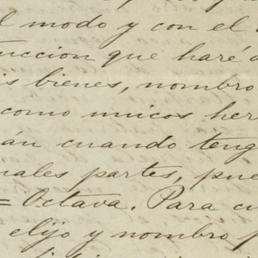 l modo y con el
ruccion que haré
is bienes, nombro
como unicos her
án cuando teng
uales partes, pue
= Octava. Para cu
elijo y nombro p